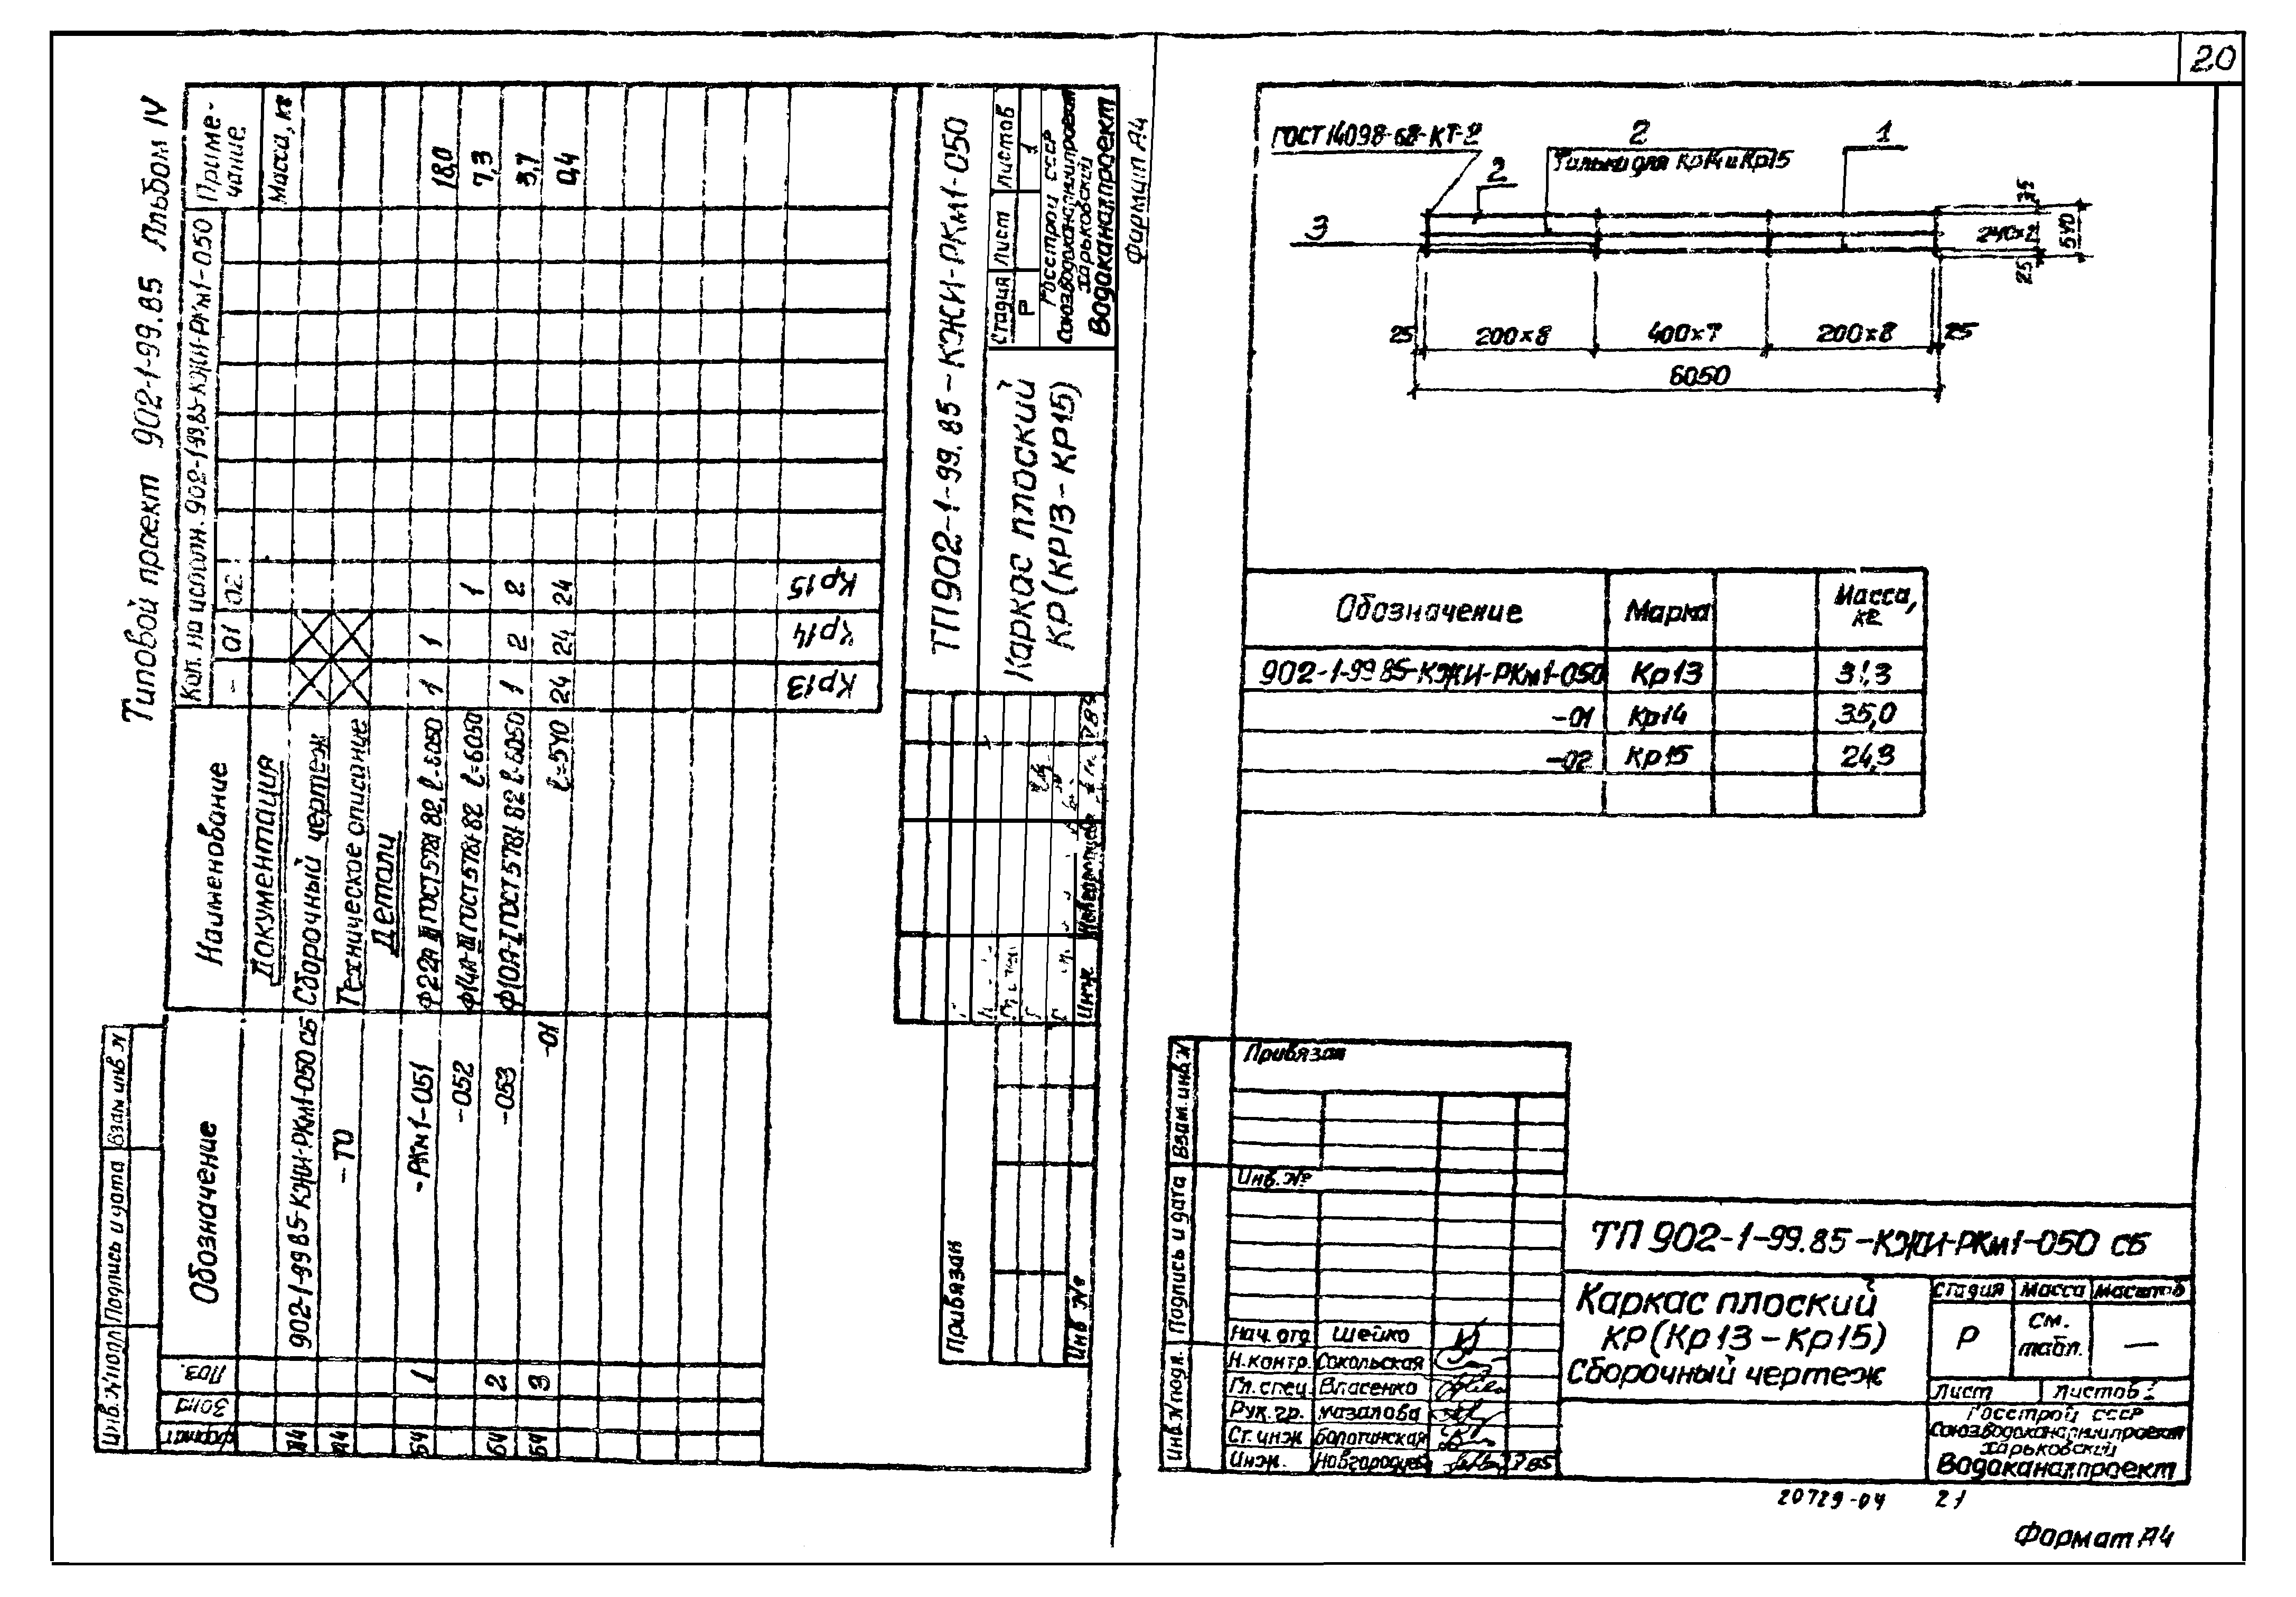 20
Типовой проект 902-1-99.85 Альбом IV
Обозначение
Наименование
Кол. на исполн. 902-1-99.85-КЖИ-РКм1-050
Приме-
чание
Формат
Зона
Поз.
- 01 02
Документация
Масса, кг
А4 902-1-99.85-КЖИ-РКм1-050 СБ Сборочный чертеж
А4 -ТО Техническое описание
Детали
БЧ 1 -РКм1-051 Ф22А III ГОСТ 5781-82, ℓ=6050 1 1 18,0
-052 Ф14А-III ГОСТ 5781-82 ℓ=6050 1 7,3
БЧ 2 -053 Ф10А-I ГОСТ 5781-82 ℓ=6050 1 2 2 3,7
БЧ 3 -01 ℓ=540 24 24 24 0,4
Кр13 Кр14 Кр15
Инв. № подл. Подпись и дата Взам инв №
Привязан
Инв №
ТП 902-1-99.85-КЖИ-РКм1-050
Каркас плоский
КР (КР13-КР15)
Стадия Лист Листов
Р 1
Госстрой СССР
Союзводоканалниипроект
Харьковский
Водоканалпроект
Инж. Новгородцева
Формат А4
ГОСТ 14098-68-КТ-2
2
Только для Кр14 и Кр15
1
2
3
25
240×2
25
540
25 200×8 400×7 200×8 25
6050
Обозначение Марка Масса, кг
902-1-99 85-КЖИ-РКм1-050 Кр13 31,3
-01 Кр14 35,0
-02 Кр15 24,3
Привязан
Инв. №
Инв. № подл. Подпись и дата Взам. инв. №
ТП 902-1-99.85-КЖИ-РКм1-050 СБ
Каркас плоский
КР (Кр13-Кр15)
Сборочный чертеж
Стадия Масса Масштаб
Р См. табл. —
Лист Листов 1
Госстрой СССР
Союзводоканалниипроект
Харьковский
Водоканалпроект
Нач. отд Шейко
Н. контр. Сокольская
Гл. спец. Власенко
Рук. гр. Мазалова
Ст. инж Болотинская
Инж. Новгородцева
20729-04 21
Формат А4